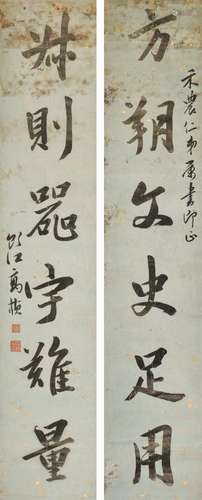 禾農仁弟屬書即正
方朔文史足用
叔則器宇難量
江高